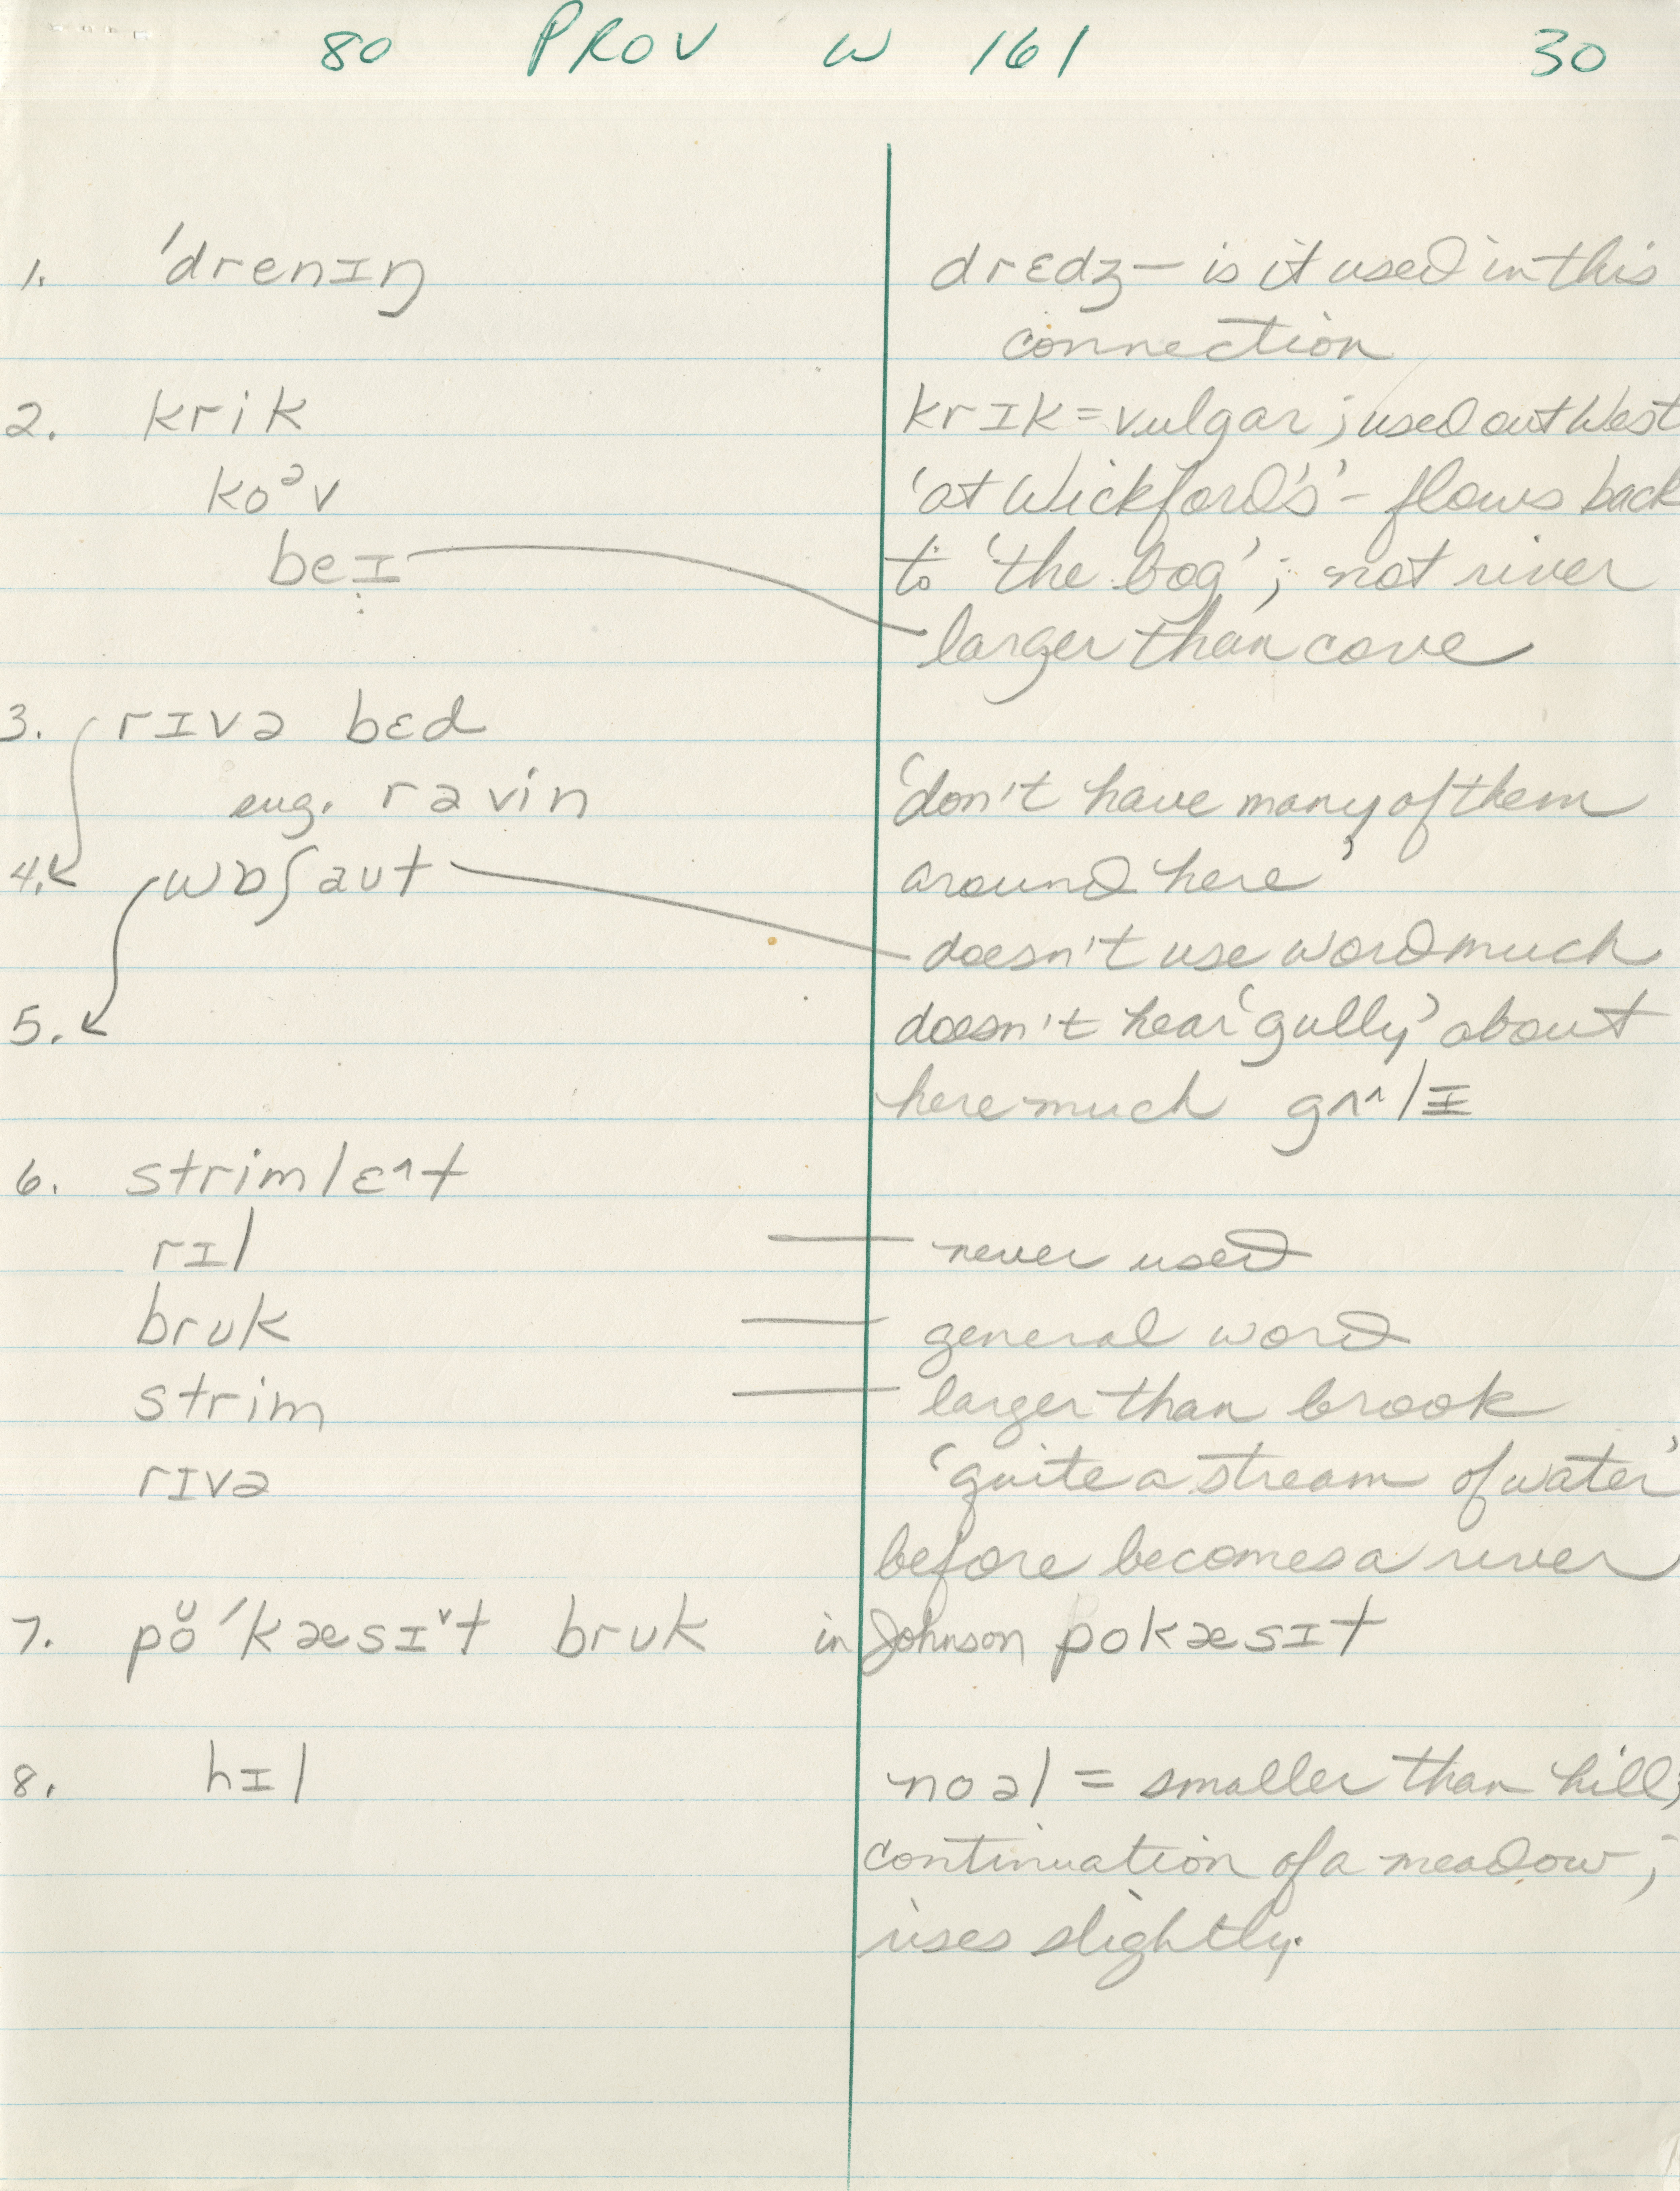 80 PROV W 161 30
1. ˈdrenɪŋ dredʒ – is it used in this
connection
2. krik krɪk = vulgar; used out West
koᵊv 'at Wickford's' – flows back
beɪ to 'the bog'; not river
larger than cove
3. rɪvə bɛd
eug. ravin 'don't have many of them
4. wɒʃaut around here'
doesn't use word much
5. doesn't hear 'gully' about
here much gʌ^lɪ
6. strimlɛ^t
rɪl — never used
bruk — general word
strim — larger than brook
rɪvə 'quite a stream of water'
before becomes a river
7. pŏˈkæsɪˇt bruk in Johnson pokæsɪt
8. hɪl noəl = smaller than hill;
continuation of a meadow;
rises slightly.